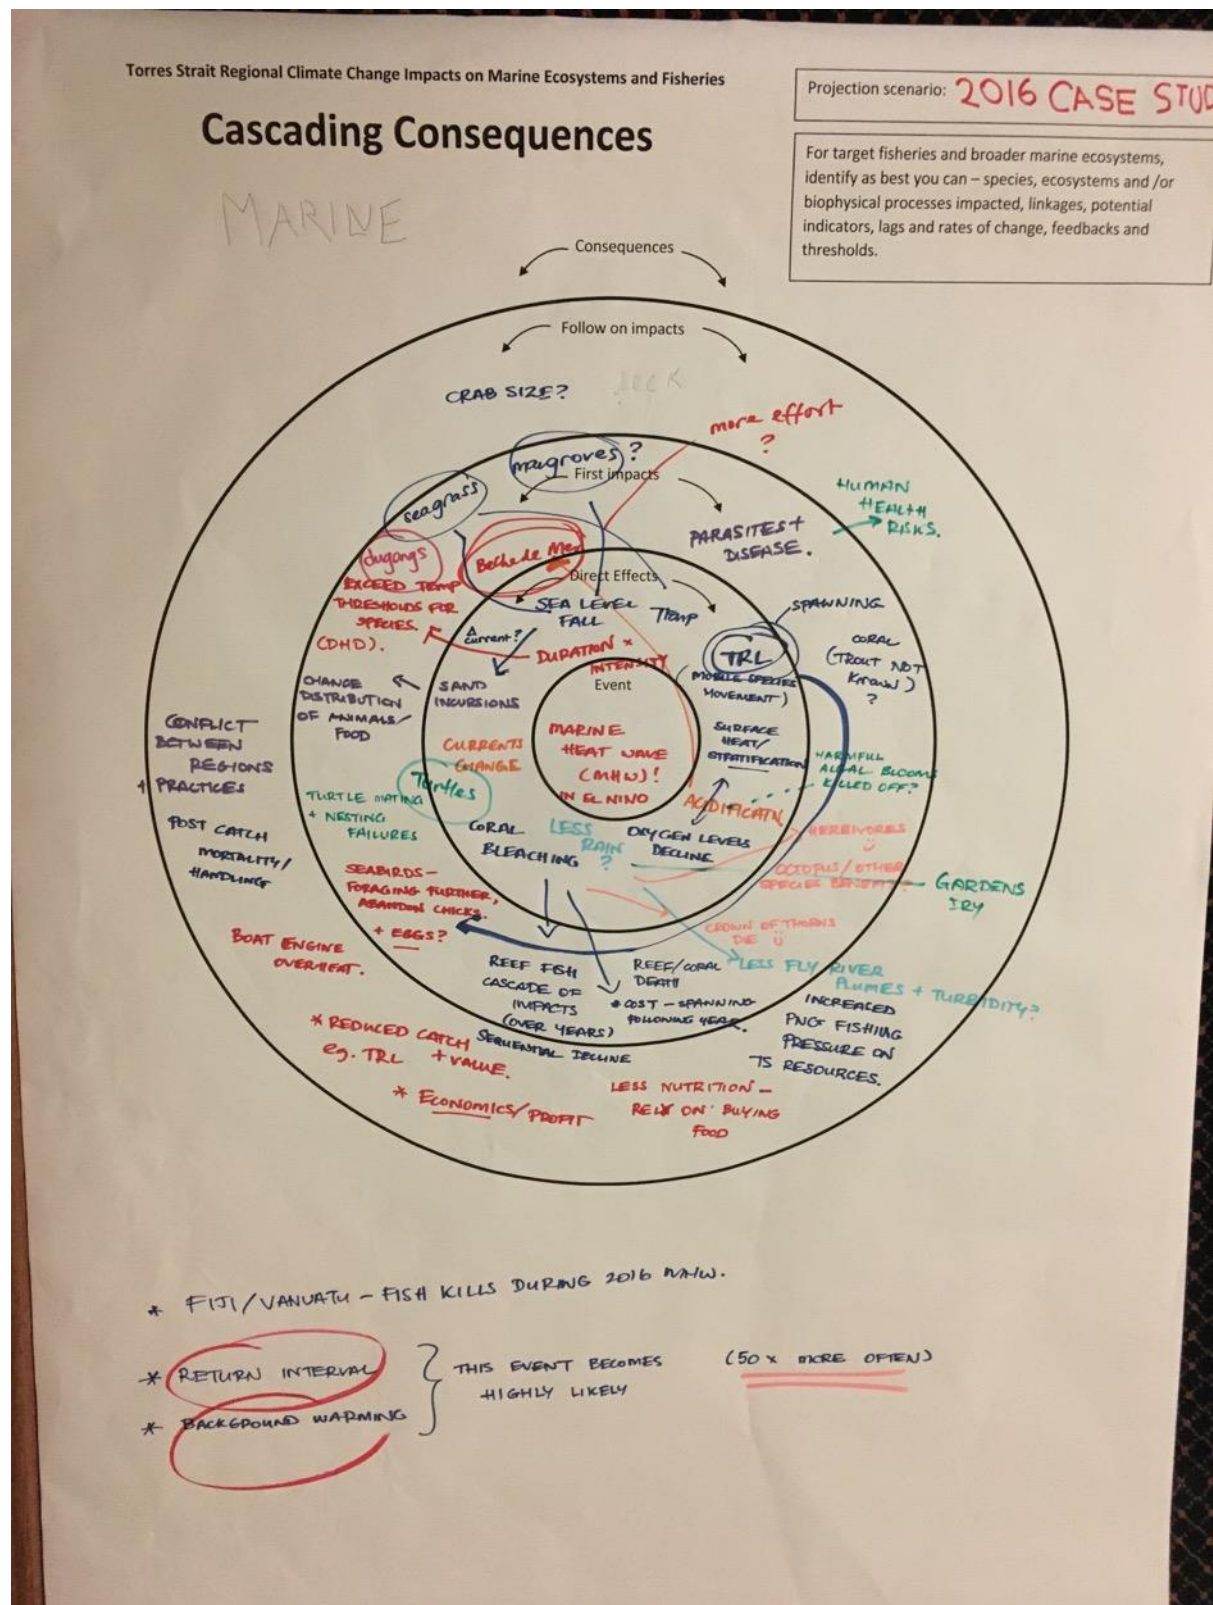 Torres Strait Regional Climate Change Impacts on Marine Ecosystems and Fisheries
Cascading Consequences
Projection scenario: 2016 CASE STUD
For target fisheries and broader marine ecosystems,
identify as best you can – species, ecosystems and /or
biophysical processes impacted, linkages, potential
indicators, lags and rates of change, feedbacks and
thresholds.
MARINE
Consequences
Follow on impacts
CRAB SIZE?
more effort
?
mangroves ?
First impacts
seagrass
HUMAN
HEALTH
RISKS.
PARASITES +
DISEASE.
dugongs
Beche de Mer
EXCEED TEMP
THRESHOLDS FOR
SPECIES.
(DHD).
Direct Effects
SEA LEVEL
FALL
Temp
SPAWNING
Δ
current?
DURATION ×
INTENSITY
TRL
(MOBILE SPECIES
MOVEMENT)
CORAL
(TROUT NOT
KNOWN)
?
Event
MARINE
HEAT WAVE
(MHW)!
IN EL NINO
SAND
INCURSIONS
CHANGE
DISTRIBUTION
OF ANIMALS/
FOOD
CONFLICT
BETWEEN
REGIONS
+ PRACTICES
CURRENTS
CHANGE
SURFACE
HEAT/
STRATIFICATION
HARMFUL
ALGAL BLOOMS
KILLED OFF?
Turtles
TURTLE MATING
+ NESTING
FAILURES
ACIDIFICATN
POST CATCH
MORTALITY/
HANDLING
CORAL
BLEACHING
LESS
RAIN
?
OXYGEN LEVELS
DECLINE
HERBIVORES
OCTOPUS/OTHER
SPECIES BENEFIT?
GARDENS
DRY
SEABIRDS –
FORAGING FURTHER,
ABANDON CHICKS.
+ EGGS?
CROWN OF THORNS
DIE
BOAT ENGINE
OVERHEAT.
REEF FISH
CASCADE OF
IMPACTS
(OVER YEARS)
SEQUENTIAL DECLINE
REEF/CORAL
DEATH
* COST – SPANNING
FOLLOWING YEAR.
LESS FLY RIVER
PLUMES + TURBIDITY?
INCREASED
PNG FISHING
PRESSURE ON
TS RESOURCES.
* REDUCED CATCH
eg. TRL + VALUE.
* ECONOMICS/PROFIT
LESS NUTRITION –
RELY ON BUYING
FOOD
* FIJI/VANUATU – FISH KILLS DURING 2016 MHW.
* RETURN INTERVAL
* BACKGROUND WARMING
THIS EVENT BECOMES
HIGHLY LIKELY
(50 x MORE OFTEN)